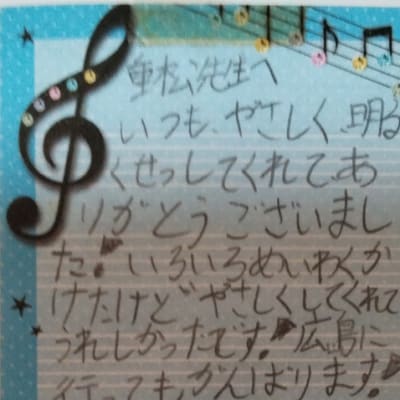 重松先生へ
いつも、やさしく、明る
くせっしてくれて、あ
りがとうございまし
た!いろいろめいわくか
けたけど やさしくしてくれて
うれしかったです!広島に
行ってもがんばります!